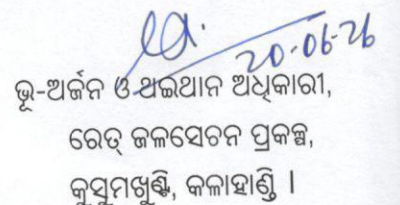 20-06-26
ଭୂ-ଅର୍ଜନ ଓ ଥଇଥାନ ଅଧିକାରୀ,
ରେତ୍ ଜଳସେଚନ ପ୍ରକଳ୍ପ,
କୁସୁମଖୁଣ୍ଟି, କଳାହାଣ୍ଡି ।